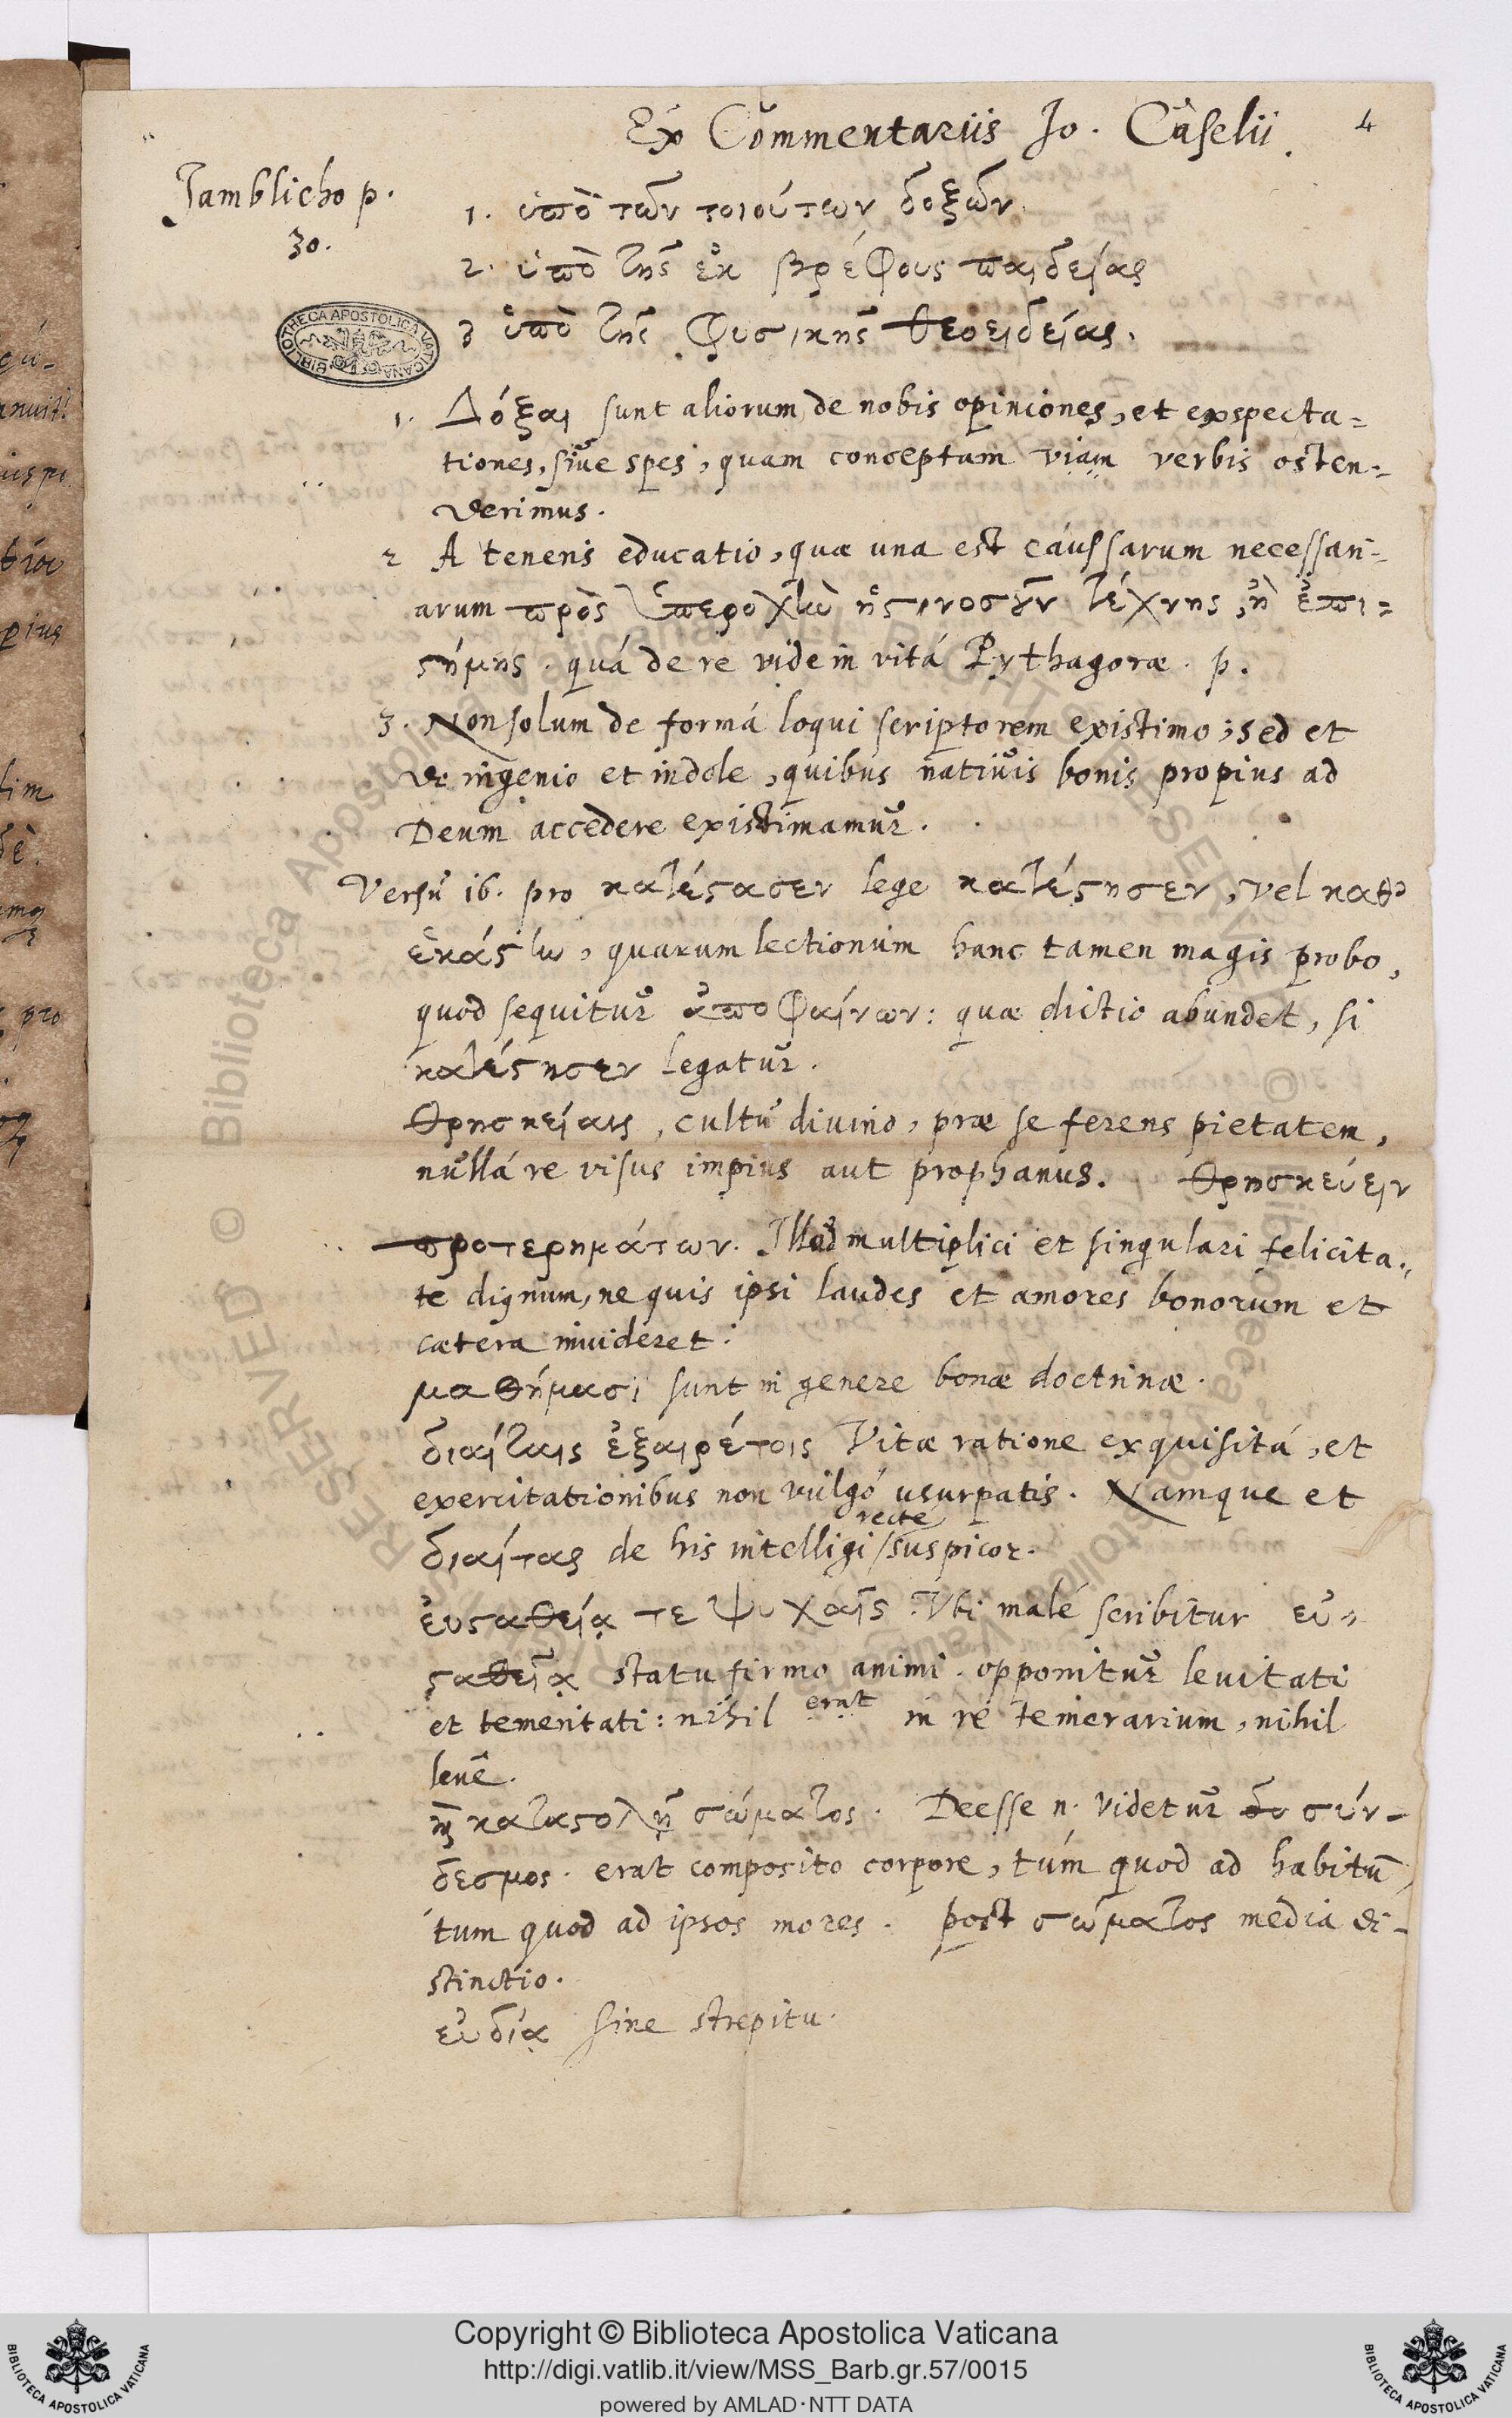 Ex Commentariis Jo. Caselii.
4
Jamblicho p.
30.
1. ὑπὸ τῶν τοιούτων δοξῶν.
2. ὑπὸ τῆς ἐκ βρέφους παιδείας
3 ὑπὸ τῆς φυσικῆς θεοειδείας.
1. Δόξαι sunt aliorum de nobis opiniones, et exspecta=
tiones, siue spes, quam conceptam viam verbis osten=
derimus.
2 A teneris educatio, quæ una est caussarum necessari-
arum πρὸς ὑπεροχὴν ἧς τινοσοῦν τέχνης, ἢ ἐπι=
ϛήμης. quâ de re vide in vitâ Pythagoræ. p.
3. Non solum de formâ loqui scriptorem existimo; sed et
de ingenio et indole, quibus natiuis bonis propius ad
Deum accedere existimamur.
Versu 16. pro κατέϛασεν lege κατέϛησεν, vel καθ'
ἑκάϛην, quarum lectionum hanc tamen magis probo,
quod sequitur ἀποφαίνων: quæ dictio abundet, si
κατέϛησεν legatur.
Θρησκείαις, cultu diuino, præ se ferens pietatem,
nullâ re visus impius aut prophanus. Θρησκεύειν
προτερημάτων. Illud multiplici et singulari felicita=
te dignum, ne quis ipsi laudes et amores bonorum et
cætera inuideret.
μαθήμασι sunt in genere bonæ doctrinæ.
διαίταις ἐξαιρέτοις Vitæ ratione exquisitâ, et
exercitationibus non vulgò usurpatis. Namque et
διαίτας de his intelligi / recte suspicor.
ἐυσαθείᾳ τε ψυχαῖς. Vbi malè scribitur εὐ=
ϛαθεῖᾳ statu firmo animi. opponitur leuitati
et temeritati: nihil erat in re temerarium, nihil
leue.
καταϛολῇ σώματος. Deesse n. videtur σύν-
δεσμος. erat composito corpore, tùm quod ad habitū,
tum quod ad ipsos mores. post σώματος media di-
stinctio.
εὐδίᾳ sine strepitu.
BIBLIOTHECA APOSTOLICA VATICANA
© Biblioteca Apostolica Vaticana
Copyright © Biblioteca Apostolica Vaticana
http://digi.vatlib.it/view/MSS_Barb.gr.57/0015
powered by AMLAD·NTT DATA
BIBLIOTECA APOSTOLICA VATICANA
BIBLIOTECA APOSTOLICA VATICANA